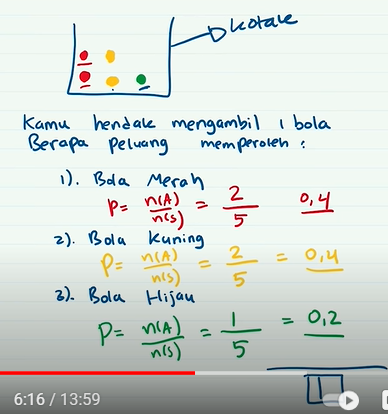 kotak
Kamu hendak mengambil 1 bola
Berapa peluang memperoleh :
1). Bola Merah
P = n(A)/n(S) = 2/5 0,4
2). Bola Kuning
P = n(A)/n(S) = 2/5 = 0,4
3). Bola Hijau
P = n(A)/n(S) = 1/5 = 0,2
1
6:16 / 13:59